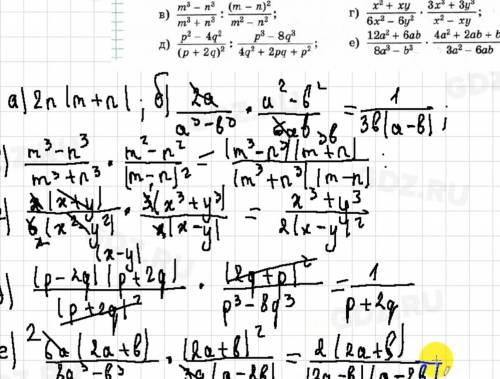 в) (m³ − n³)/(m³ + n³) : (m − n)²/(m² − n²); г) (x² + xy)/(6x² − 6y²) · (3x³ + 3y³)/(x² − xy);
д) (p² − 4q²)/(p + 2q)² : (p³ − 8q³)/(4q² + 2pq + p²); е) (12a² + 6ab)/(8a³ − b³) · (4a² + 2ab + b
/(3a² − 6ab
а) 2n(m+n); б) 2a/(a³−b³) · (a²−b²)/(6ab) = 1/(3b(a−b));
) (m³−n³)/(m³+n³) · (m²−n²)/(m−n)² = (m³−n³)(m+n)/((m³+n³)(m−n)) ;
x(x+y)/(6(x²−y²)) · 3(x³+y³)/(x(x−y)) = (x³+y³)/(2(x−y)²
2 (x−y)
) (p−2q)(p+2q)/(p+2q)² · (2q+p)²/(p³−8q³) = 1/(p+2q)
е) 2 6a(2a+b)/(8a³−b³) · (2a+b)²/(3a(a−2b)) = 2(2a+b)/((2a−b)(a−2b)
GDZ.RU